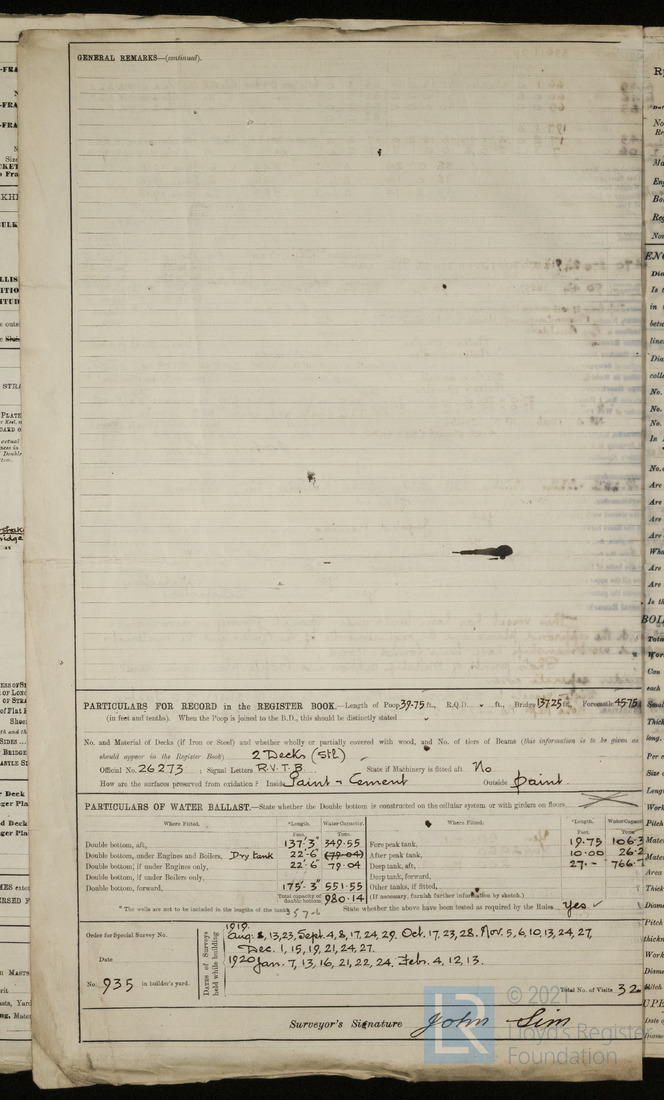 GENERAL REMARKS—(continued).
PARTICULARS FOR RECORD in the REGISTER BOOK.—Length of Poop 39·75 ft., R.Q.D. ft., Bridge 137·25 ft., Forecastle 45·75
(in feet and tenths). When the Poop is joined to the B.D., this should be distinctly stated
No. and Material of Decks (if Iron or Steel) and whether wholly or partially covered with wood, and No. of tiers of Beams (this information is to be given as
should appear in the Register Book) 2 Decks (Stl)
Official No. 26273 ; Signal Letters R.V.T.B. State if Machinery is fitted aft No
How are the surfaces preserved from oxidation? Inside Paint & Cement Outside paint.
PARTICULARS OF WATER BALLAST.—State whether the Double bottom is constructed on the cellular system or with girders on floors
Where Fitted. *Length. Water Capacity. Where Fitted. *Length. Water Capacity
Feet. Tons. Feet. Tons
Double bottom, aft, 137'3" 349·55 Fore peak tank, 19·75 106·3
Double bottom, under Engines and Boilers, Dry tank 22'-6" (79·04) After peak tank, 10·00 26·2
Double bottom, if under Engines only, 22'-6" 79·04 Deep tank, aft, 27·- 766·7
Double bottom, if under Boilers only, Deep tank, forward,
Double bottom, forward, 175·3" 551·55 Other tanks, if fitted,
Total capacity of double bottom 980·14 (If necessary, furnish further information by sketch.)
* The wells are not to be included in the lengths of the tanks 357-6 State whether the above have been tested as required by the Rules Yes
Order for Special Survey No.
Date
No. 935 in builder's yard.
DATES of Surveys held while building
1919.
Aug. 8, 13, 23, Sept. 4, 8, 17, 24, 29. Oct. 17, 23, 28. Nov. 5, 6, 10, 13, 24, 27,
Dec. 1, 15, 19, 21, 24, 27.
1920 Jan. 7, 13, 16, 21, 22, 24. Feb. 4, 12, 13.
Total No. of Visits 32
Surveyor's Signature John Sim
© 2021
LR
Lloyd's Register
Foundation